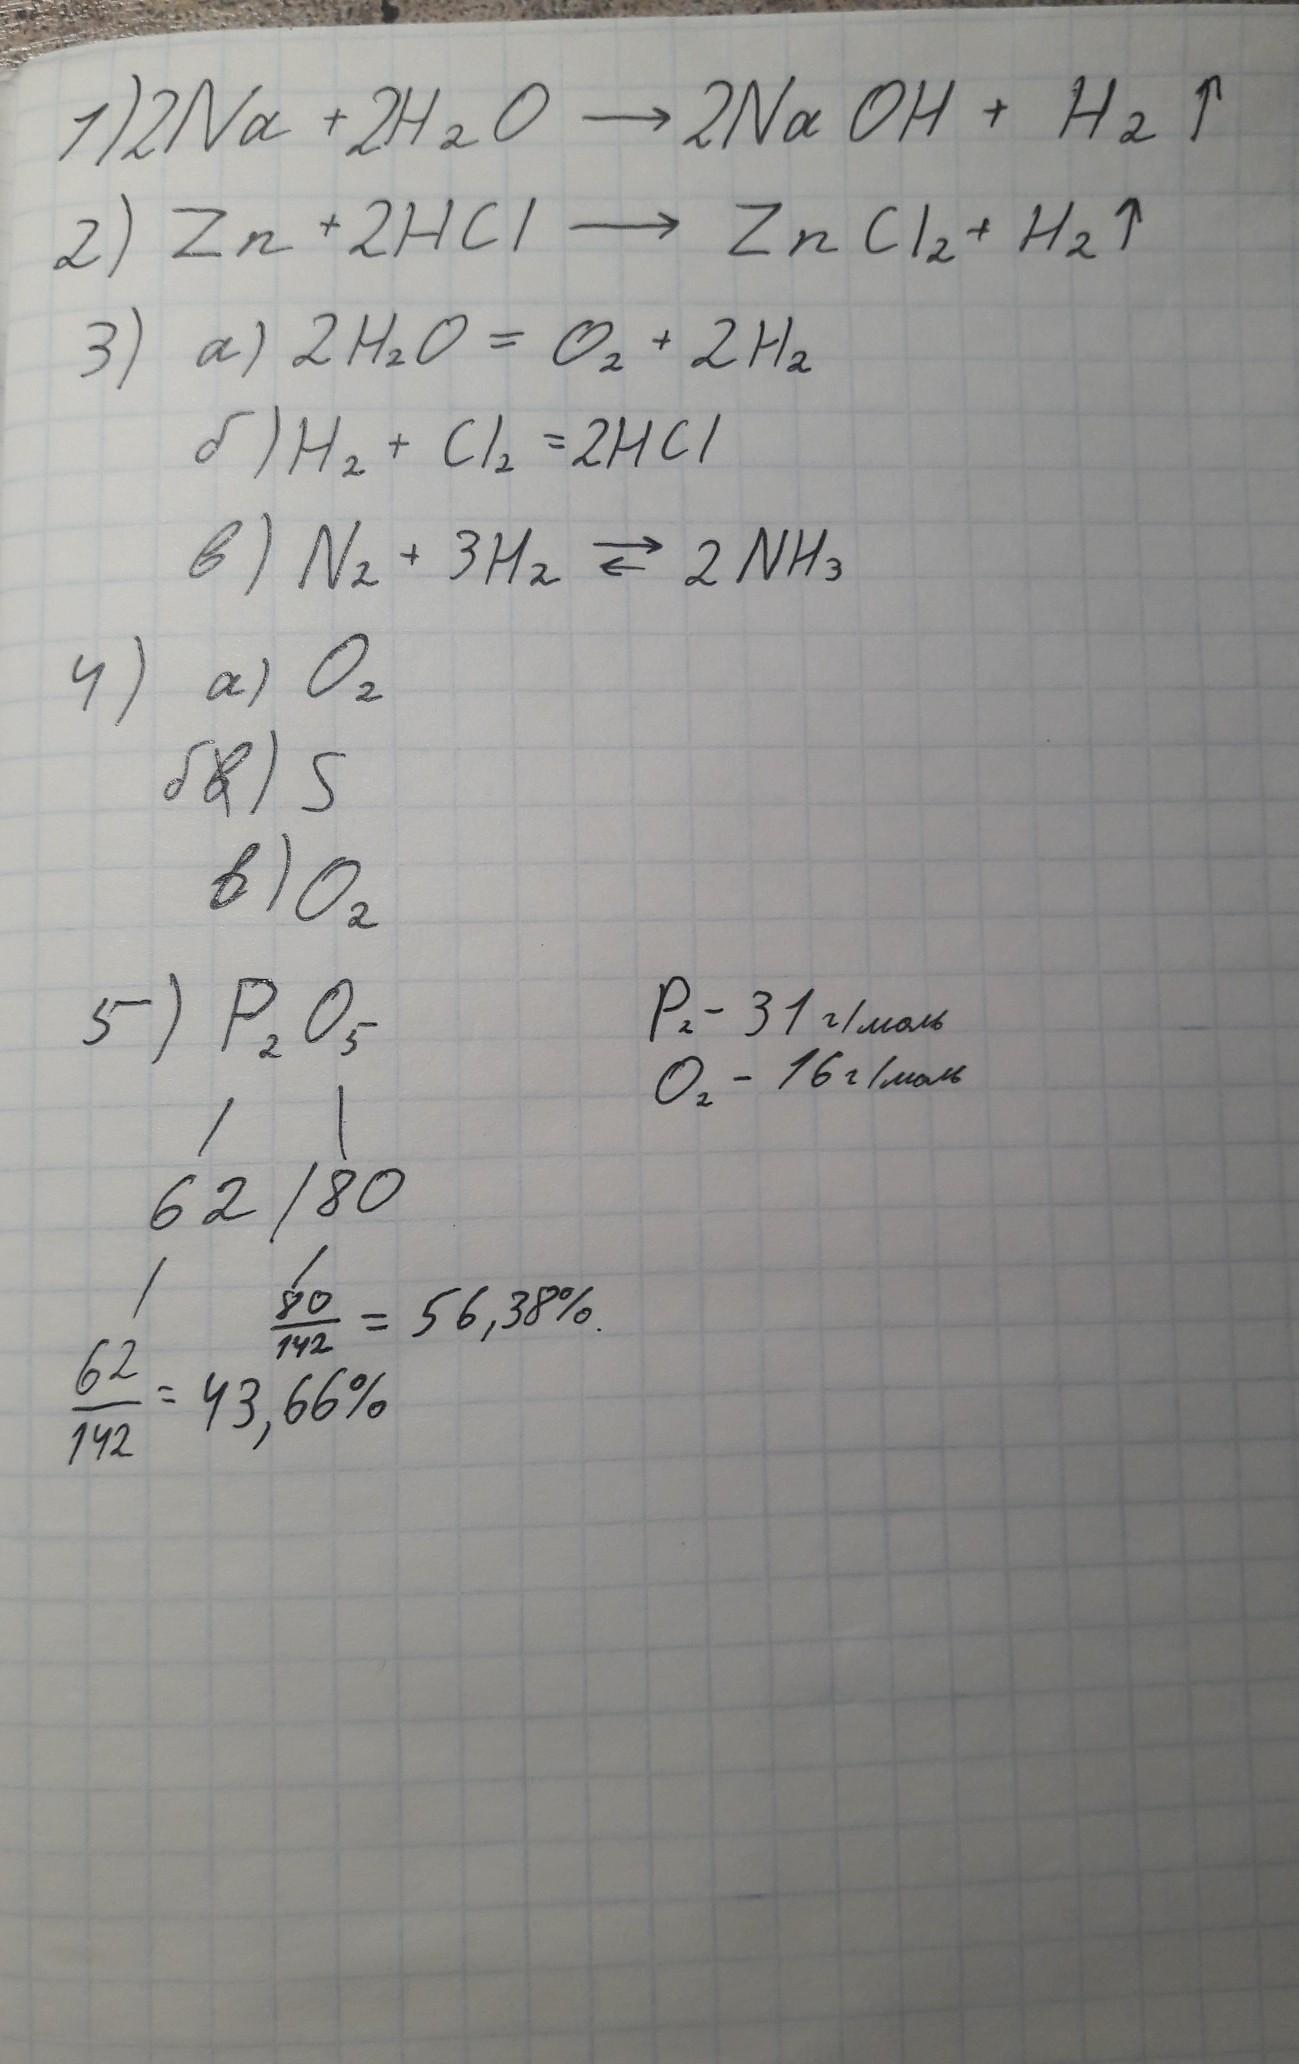 1) 2Na + 2H₂O → 2NaOH + H₂↑
2) Zn + 2HCl → ZnCl₂ + H₂↑
3) а) 2H₂O = O₂ + 2H₂
б) H₂ + Cl₂ = 2HCl
в) N₂ + 3H₂ ⇄ 2NH₃
4) а) O₂
б) S
в) O₂
5) P₂O₅
P₂ - 31 г/моль
O₂ - 16 г/моль
62 / 80
80/142 = 56,38%.
62/142 = 43,66%